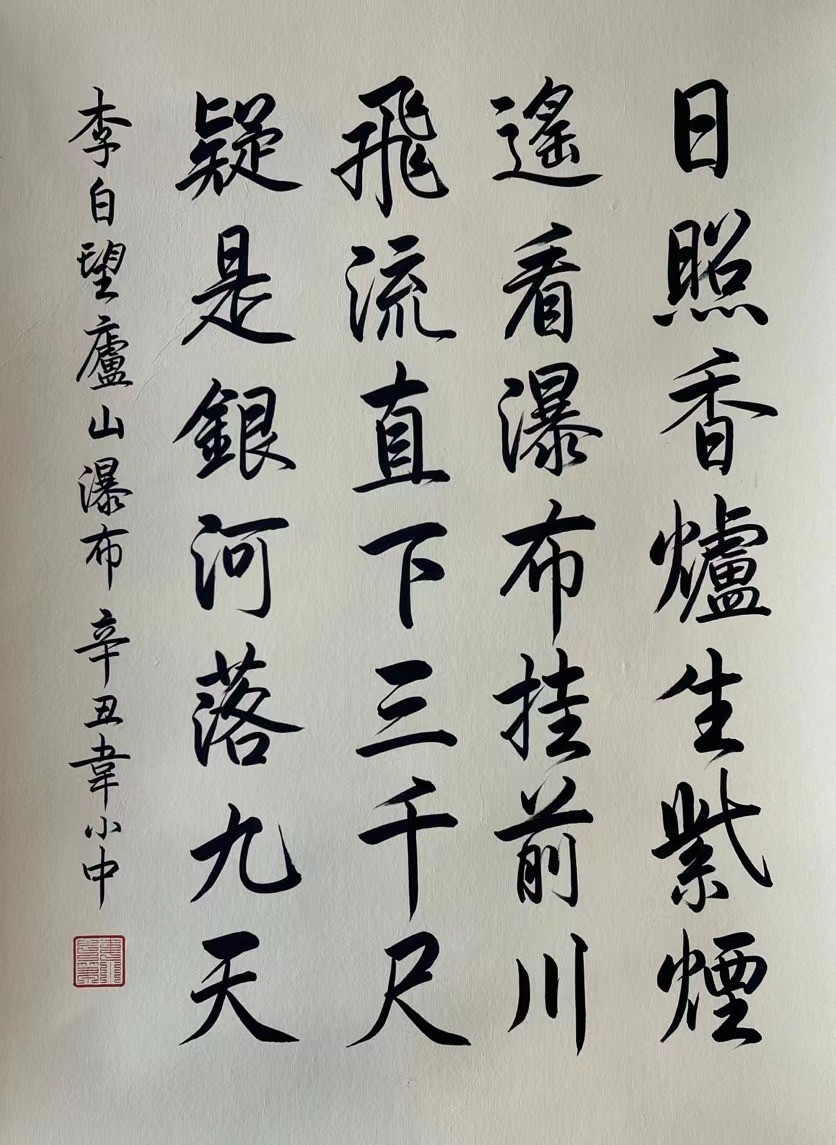 日照香爐生紫煙
遙看瀑布挂前川
飛流直下三千尺
疑是銀河落九天
李白望廬山瀑布 辛丑韋小中